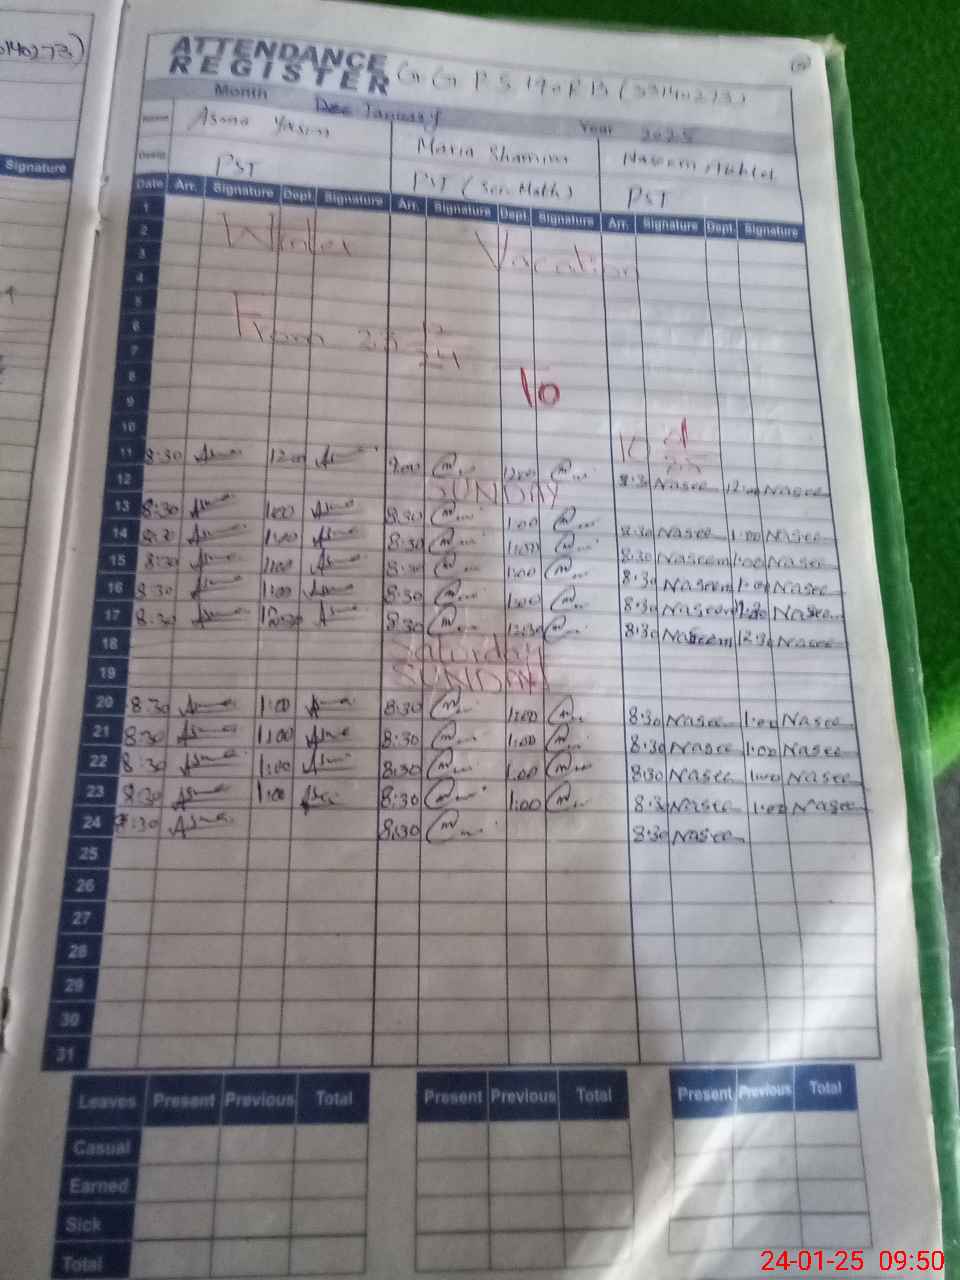 0140273)
Signature
ATTENDANCE
REGISTER G.G.P.S 190 R.B (33140273)
Month January Year 2025
Name Asma Yasin Maria Shamim Naseem Akhter
Desig. PST PST (Sci. Math) PST
Date Arr. Signature Dept. Signature Arr. Signature Dept. Signature Arr. Signature Dept. Signature
1
2 Winter Vacation
3
4
5
6 From 23 12/24
7
8 To
9
10 10 1/25
11 8:30 Asma 12:00 Asma 9:00 12:00 8:30 Nasee 12:00 Nasee
12 SUNDAY
13 8:30 Asma 1:00 Asma 8:30 1:00 8:30 Nasee 1:00 Nasee
14 8:30 Asma 1:00 Asma 8:30 1:00 8:30 Naseem 1:00 Nasee
15 8:30 Asma 1:00 Asma 8:30 1:00 8:30 Naseem 1:00 Nasee
16 8:30 Asma 1:00 Asma 8:30 1:00 8:30 Naseem Nasee
17 8:30 Asma 12:30 Asma 8:30 12:30 8:30 Naseem 12:30 Nasee
18 Saturday
19 SUNDAY
20 8:30 Asma 1:00 Asma 8:30 1:00 8:30 Nasee 1:00 Nasee
21 8:30 Asma 1:00 Asma 8:30 1:00 8:30 Nasee 1:00 Nasee
22 8:30 Asma 1:00 Asma 8:30 1:00 8:30 Nasee 1:00 Nasee
23 8:30 Asma 1:00 Asma 8:30 1:00 8:3 Nasee 1:00 Nasee
24 8:30 Asma 8:30 8:30 Nasee
25
26
27
28
29
30
31
Leaves Present Previous Total Present Previous Total Present Previous Total
Casual
Earned
Sick
Total
24-01-25 09:50